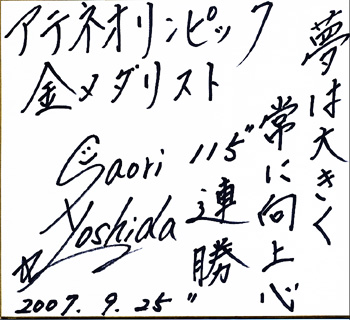 アテネオリンピック
金メダリスト
夢は大きく
常に向上心
"115
連勝"
Saori
Yoshida
2007.9.25